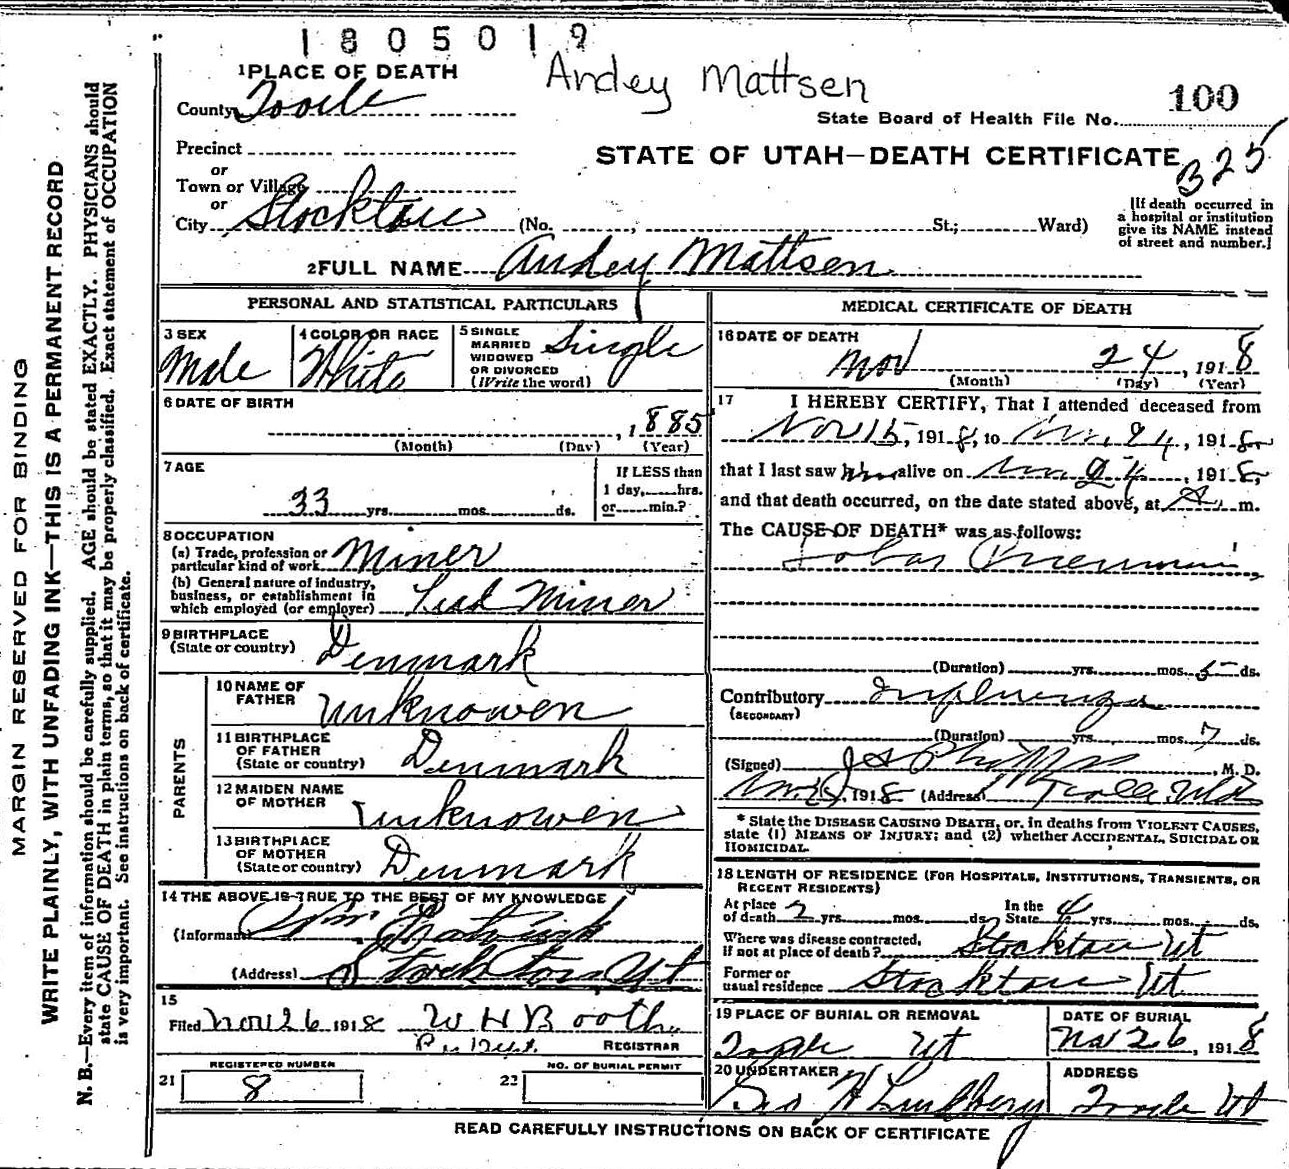 1805019
Andey Mattsen
1 PLACE OF DEATH
County Tooele
100
State Board of Health File No.
Precinct
STATE OF UTAH—DEATH CERTIFICATE
325
or
Town or Village
or
City Stockton (No. , St.; Ward)
[If death occurred in a hospital or institution give its NAME instead of street and number.]
2 FULL NAME Andey Mattsen
PERSONAL AND STATISTICAL PARTICULARS
3 SEX Male
4 COLOR OR RACE White
5 SINGLE MARRIED WIDOWED OR DIVORCED (Write the word) Single
6 DATE OF BIRTH
, 1885
(Month) (Day) (Year)
7 AGE
33 yrs. mos. ds.
If LESS than 1 day, hrs. or min.?
8 OCCUPATION
(a) Trade, profession or particular kind of work Miner
(b) General nature of industry, business, or establishment in which employed (or employer) Lead Miner
9 BIRTHPLACE (State or country) Denmark
PARENTS
10 NAME OF FATHER Unknowen
11 BIRTHPLACE OF FATHER (State or country) Denmark
12 MAIDEN NAME OF MOTHER Unknowen
13 BIRTHPLACE OF MOTHER (State or country) Denmark
14 THE ABOVE IS TRUE TO THE BEST OF MY KNOWLEDGE
(Informant) Wm
(Address) Stockton Ut
15
Filed Nov 26 1918 W H Booth
REGISTRAR
REGISTERED NUMBER
21 8
NO. OF BURIAL PERMIT
22
MEDICAL CERTIFICATE OF DEATH
16 DATE OF DEATH
Nov 24, 1918
(Month) (Day) (Year)
17 I HEREBY CERTIFY, That I attended deceased from
Nov 15, 1918, to Nov. 24, 1918,
that I last saw him alive on Nov. 24, 1918,
and that death occurred, on the date stated above, at A. m.
The CAUSE OF DEATH* was as follows:
Lobar Pneumonia
(Duration) yrs. mos. 5 ds.
Contributory Influenza
(SECONDARY)
(Duration) yrs. mos. 7 ds.
(Signed) J A Phipps, M. D.
, 1918 (Address) Tooele Utah
* State the DISEASE CAUSING DEATH, or, in deaths from VIOLENT CAUSES,
state (1) MEANS OF INJURY; and (2) whether ACCIDENTAL, SUICIDAL OR
HOMICIDAL.
18 LENGTH OF RESIDENCE (FOR HOSPITALS, INSTITUTIONS, TRANSIENTS, OR
RECENT RESIDENTS)
At place of death 2 yrs. mos. ds. In the State 4 yrs. mos. ds.
Where was disease contracted, if not at place of death? Stockton Ut
Former or usual residence Stockton Ut.
19 PLACE OF BURIAL OR REMOVAL
Tooele Ut
DATE OF BURIAL
Nov 26, 1918
20 UNDERTAKER
Geo H Lundberg
ADDRESS
Tooele Ut
READ CAREFULLY INSTRUCTIONS ON BACK OF CERTIFICATE
MARGIN RESERVED FOR BINDING
WRITE PLAINLY, WITH UNFADING INK—THIS IS A PERMANENT RECORD
N. B.—Every item of information should be carefully supplied. AGE should be stated EXACTLY. PHYSICIANS should
state CAUSE OF DEATH in plain terms, so that it may be properly classified. Exact statement of OCCUPATION
is very important. See instructions on back of certificate.